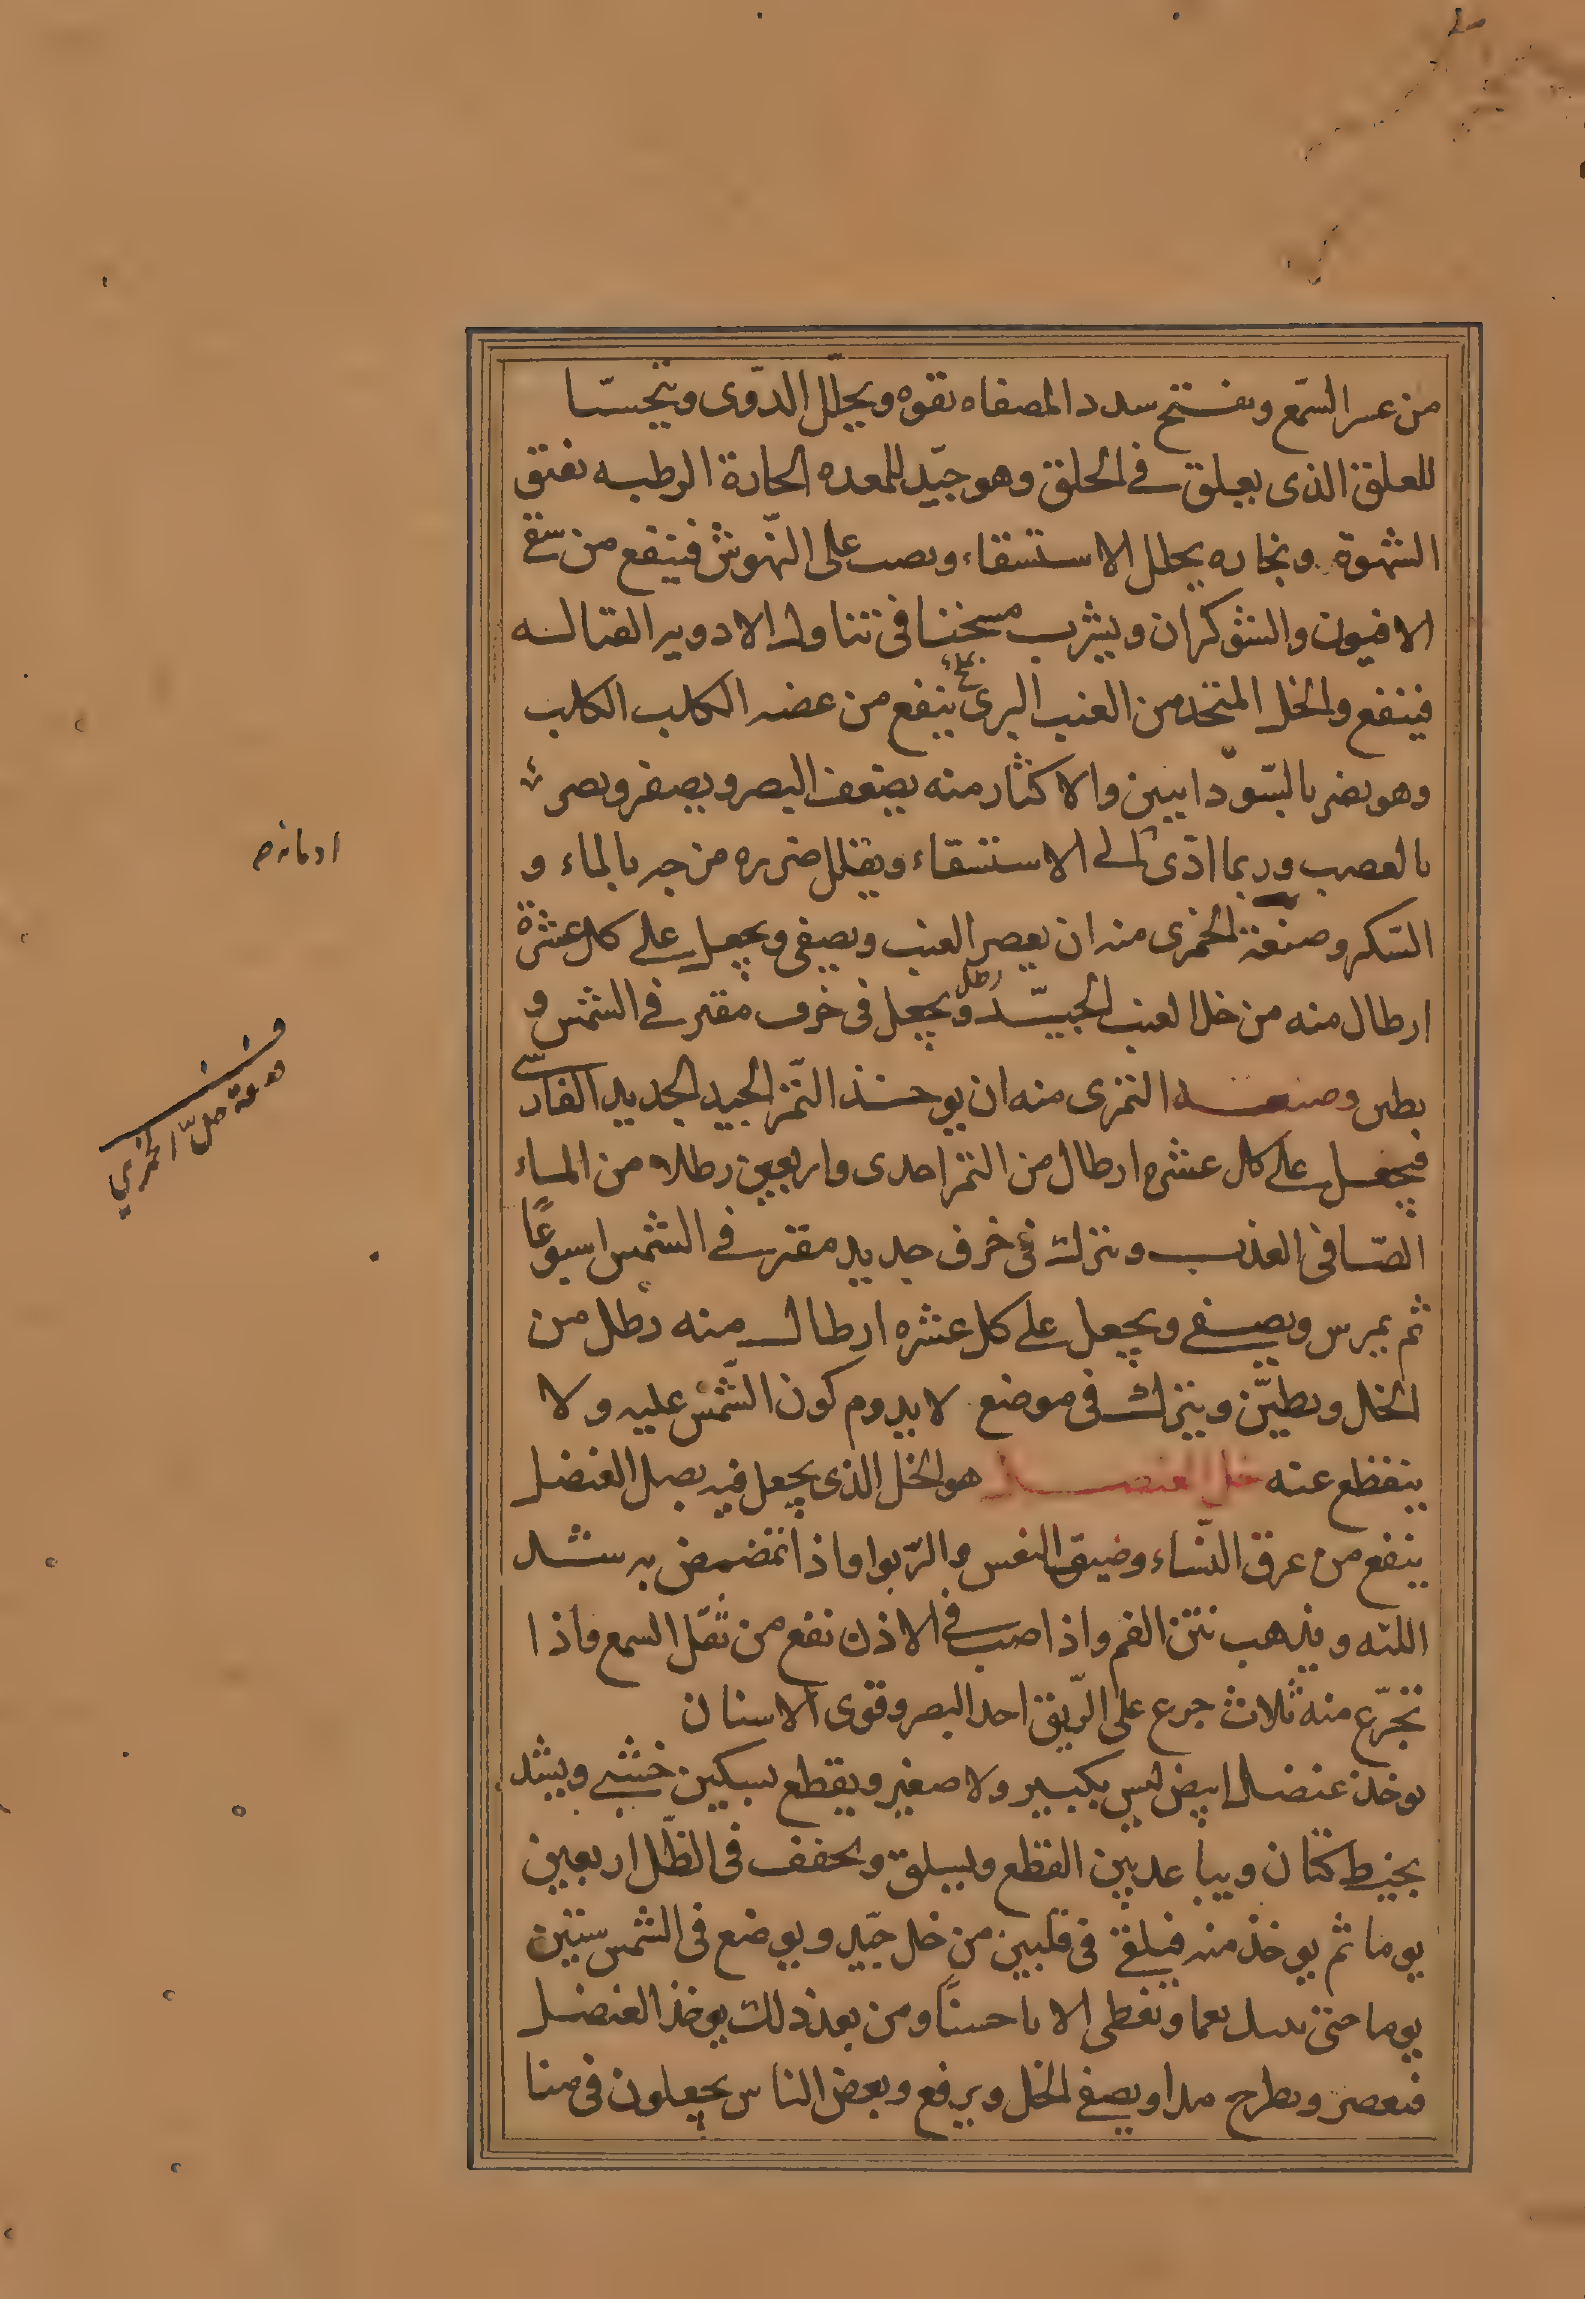 من عسر السّمع ويفتح سدد المصفاه بقوه ويحلّل الدّوى ويتحسّا
للعلق الذى يعلق في الحلق وهو جيّد للمعده الحارة الرطبه يفتق
الشهوة وبخاره يحلل الاستسقاء ويصب على النّهوش فينفع من سقى
الافيون والشوكران ويشرب مسخنا فى تناول الادويه القتاله
فينفع والخل المتخذ من العنب البرى ينفع من عضه الكلب الكلب
وهو يضر بالسّوداييين والاكثار منه يضعف البصر ويصفر ويضر
بالعصب وربما ادّى الى الاستسقاء ويقلل ضرره مزجه بالماء و
السّكر وصنعة الخمرى منه ان يعصر العنب ويصفى ويجعل على كل عشرة
ارطال منه من خل العنب الجيّد رطل ويجعل فى خزف مقير في الشمس و
يطين وصنعه التمرى منه ان يوخذ التّمر الجيد الجديد الفارسى
فيجعل على كل عشره ارطال من التمر احدى واربعين رطلا من الماء
الصّافى العذب ويترك فى خزف جديد مقير في الشمس اسبوعًا
ثم يمرس ويصفى ويجعل على كل عشره ارطال منه رطل من
الخل ويطيّن ويترك فى موضع لا يدوم كون الشّمس عليه ولا
ينقطع عنه خل العنصل هو الخل الذى يجعل فيه بصل العنصل
ينفع من عرق النّساء وضيق النفس والرّبو واذا تمضمض به شد
اللثه ويذهب نتن الفم واذا صب في الاذن نفع من ثقل السمع واذا
تجرّع منه ثلاث جرع على الرّيق احد البصر وقوى الاسنان
يوخذ عنصل ابيض ليس بكبير ولا صغير ويقطع بسكين خشبى ويشد
بخيط كتان ويباعد بين القطع ويسلق ويجفف فى الظّل اربعين
يوما ثم يوخذ منه فيلقى فى قلبين من خل جيّد ويوضع فى الشمس ستين
يوما حتى يبل نعما ويغطى الانا حسنًا ومن بعد ذلك يوخذ العنصل
فيعصر ويطرح ويصفى الخل ويرفع وبعض الناس يجعلون فى منا
صنعة خلّ الخمري